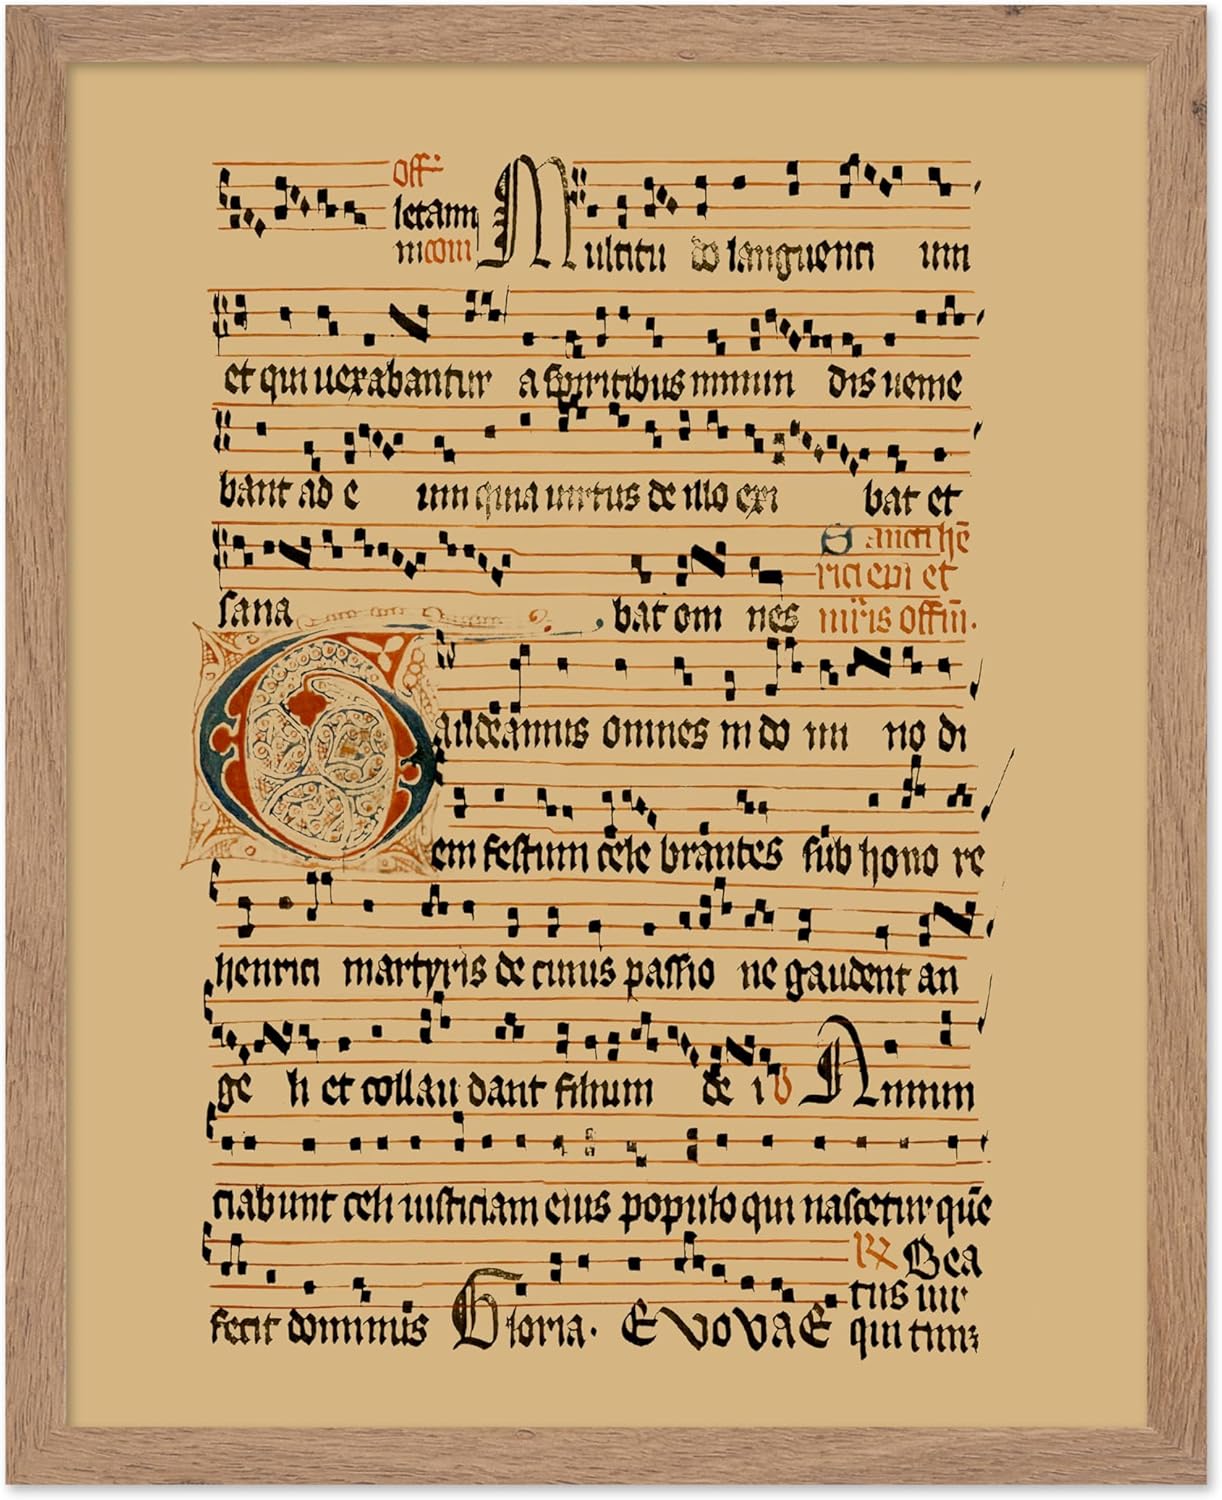 Off
letami
ni com Multitu do languenti um
et qui uexabantur a spiritibus inmun dis uenie
bant ad e um quia uirtus de illo exi bat et
sana bat om nes
Sancti hē
rici epi et
mr̄is offm̄.
Gaudeamus omnes in do mi no di
em festum cele brantes sub hono re
henrici martyris de cuius passio ne gaudent an
ge li et collau dant filium de i V Annun
ciabunt celi iusticiam eius populo qui nascetur quē
fecit dominus Gloria. EVOVAE
℟ Bea
tus uir
qui tim